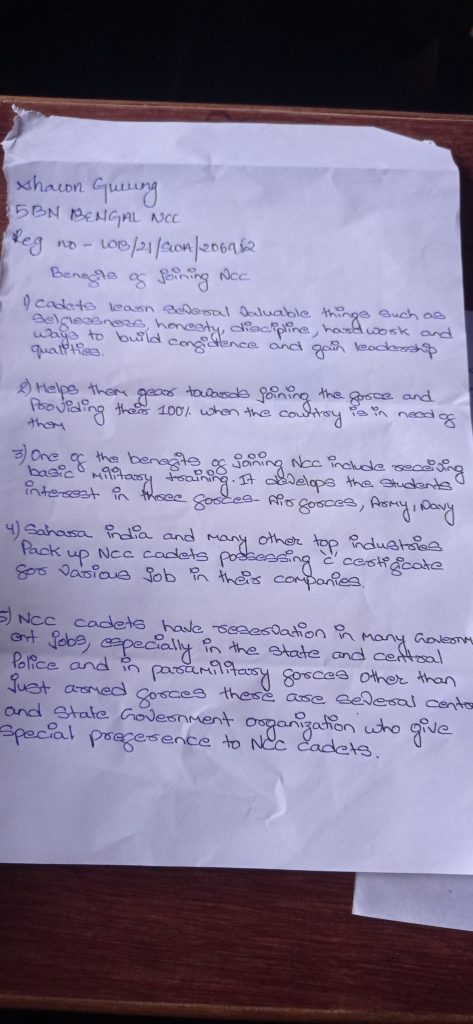 Sharon Gurung
5BN BENGAL NCC
Reg no - WB/21/SDA/206962
Benefits of joining NCC
1) Cadets learn several valuable things such as
selflessness, honesty, discipline, hard work and
ways to build confidence and gain leadership
qualities.
2) Helps them gear towards joining the force and
Providing their 100% when the country is in need of
them
3) One of the benefits of joining NCC include receiving
basic military training. It develops the students
interest in three forces- Air forces, Army, Navy
4) Sahara india and many other top industries
Pack up NCC cadets possessing 'c' certificate
for various job in their companies.
5) NCC cadets have reservation in many Governm
ent jobs, especially in the state and central
Police and in paramilitary forces other than
just armed forces there are several cente
and state Government organization who give
special preference to NCC cadets.